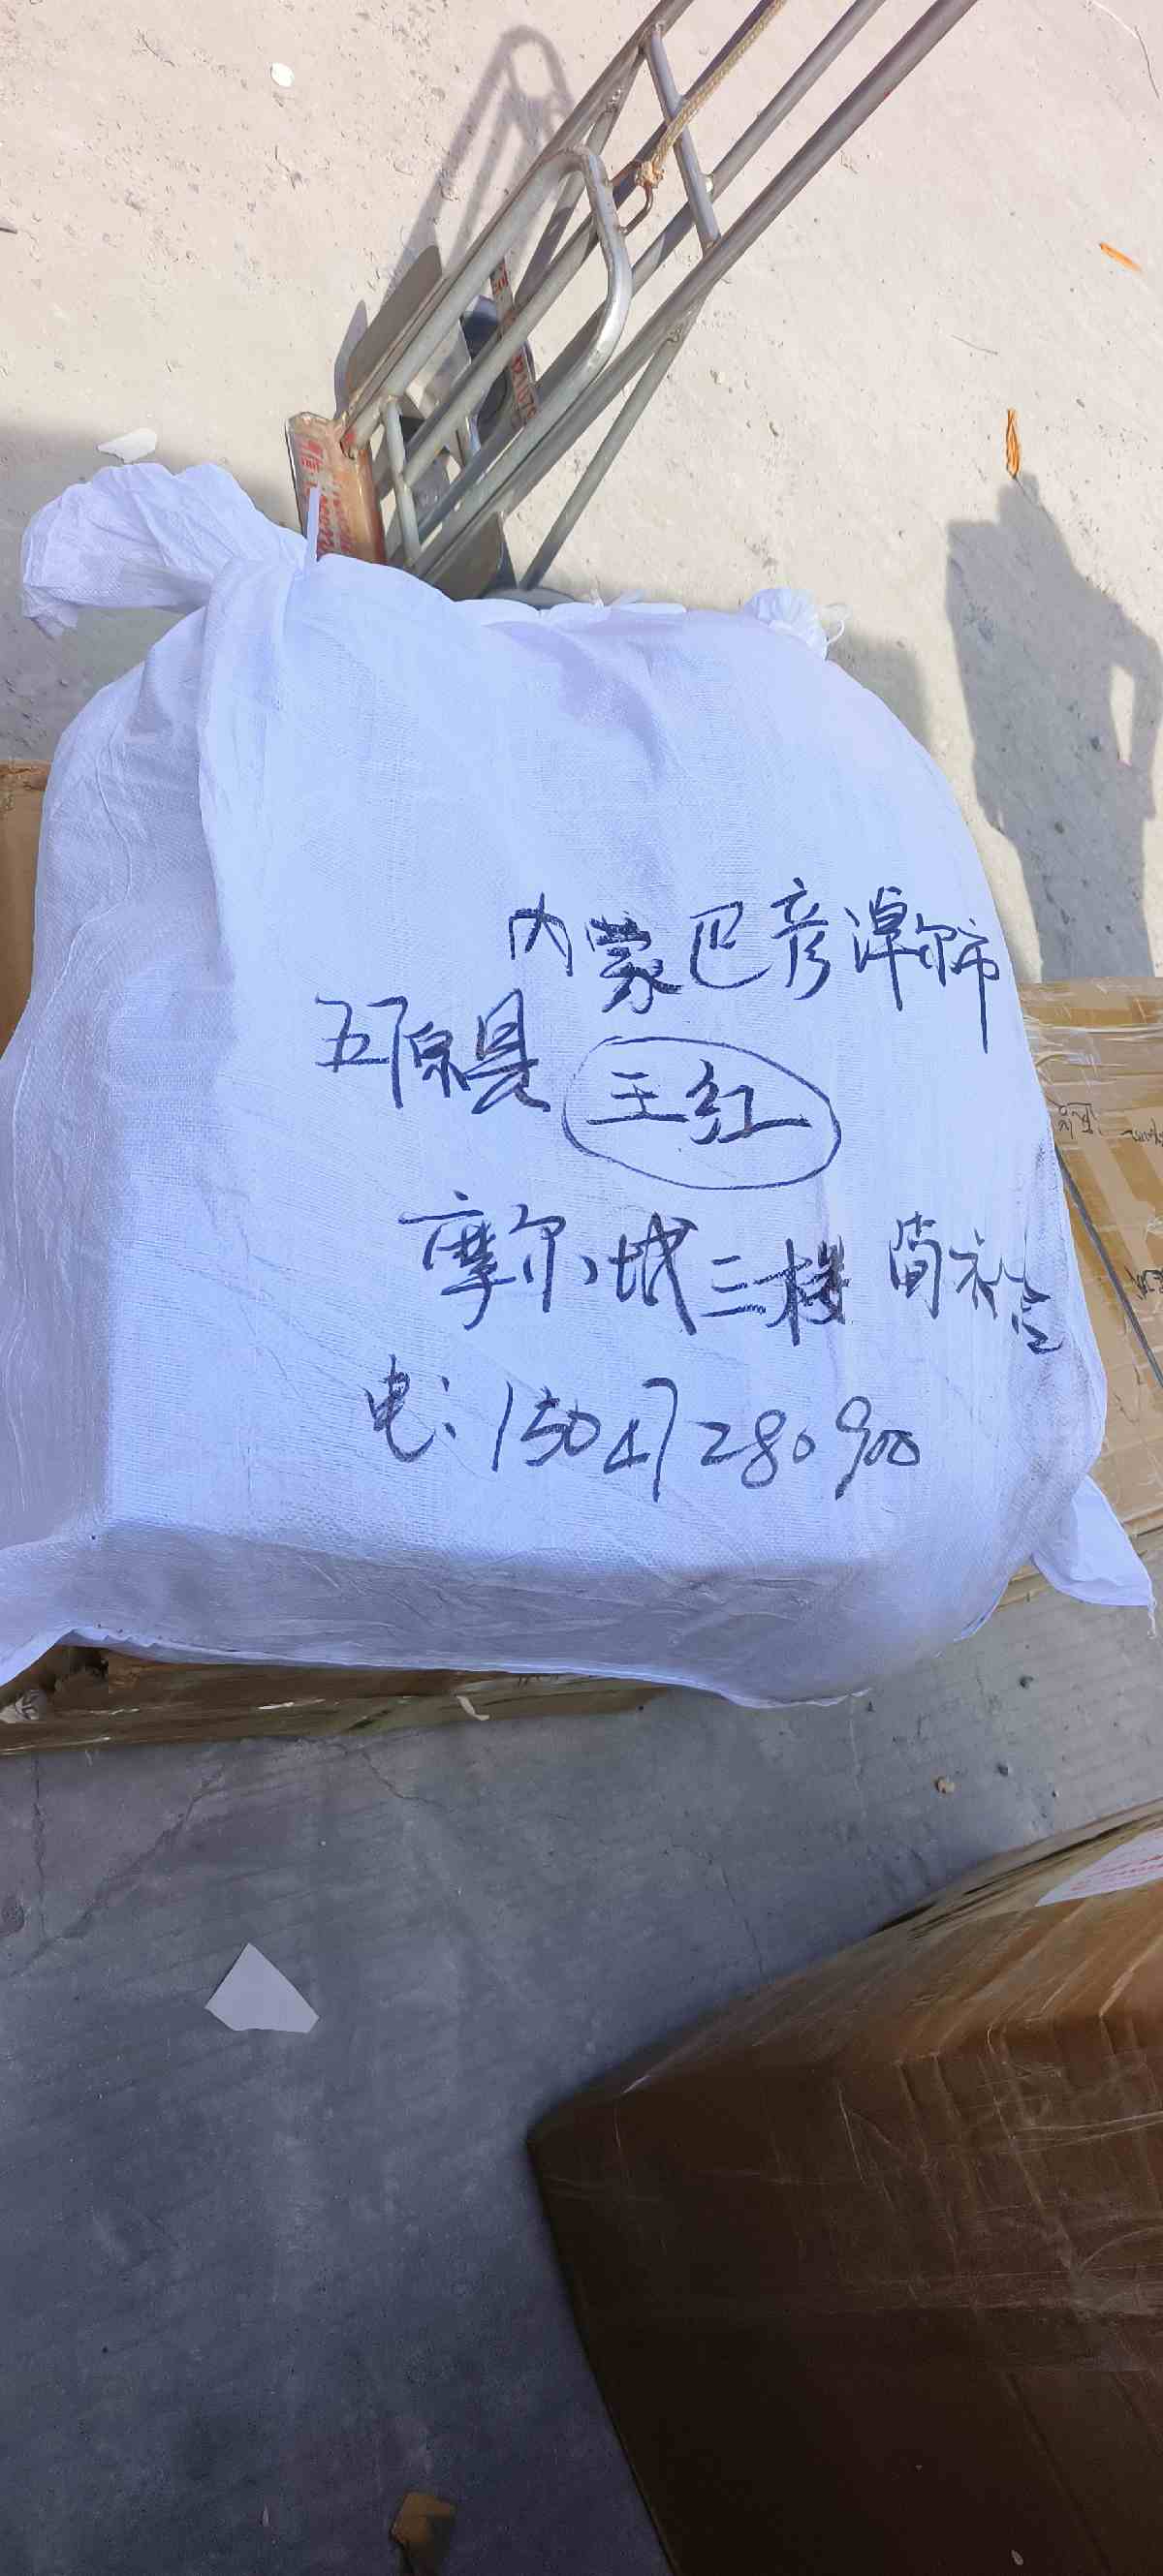 内蒙巴彦淖尔市
五原县 王红
摩尔城三楼 简衣
电:15047280900